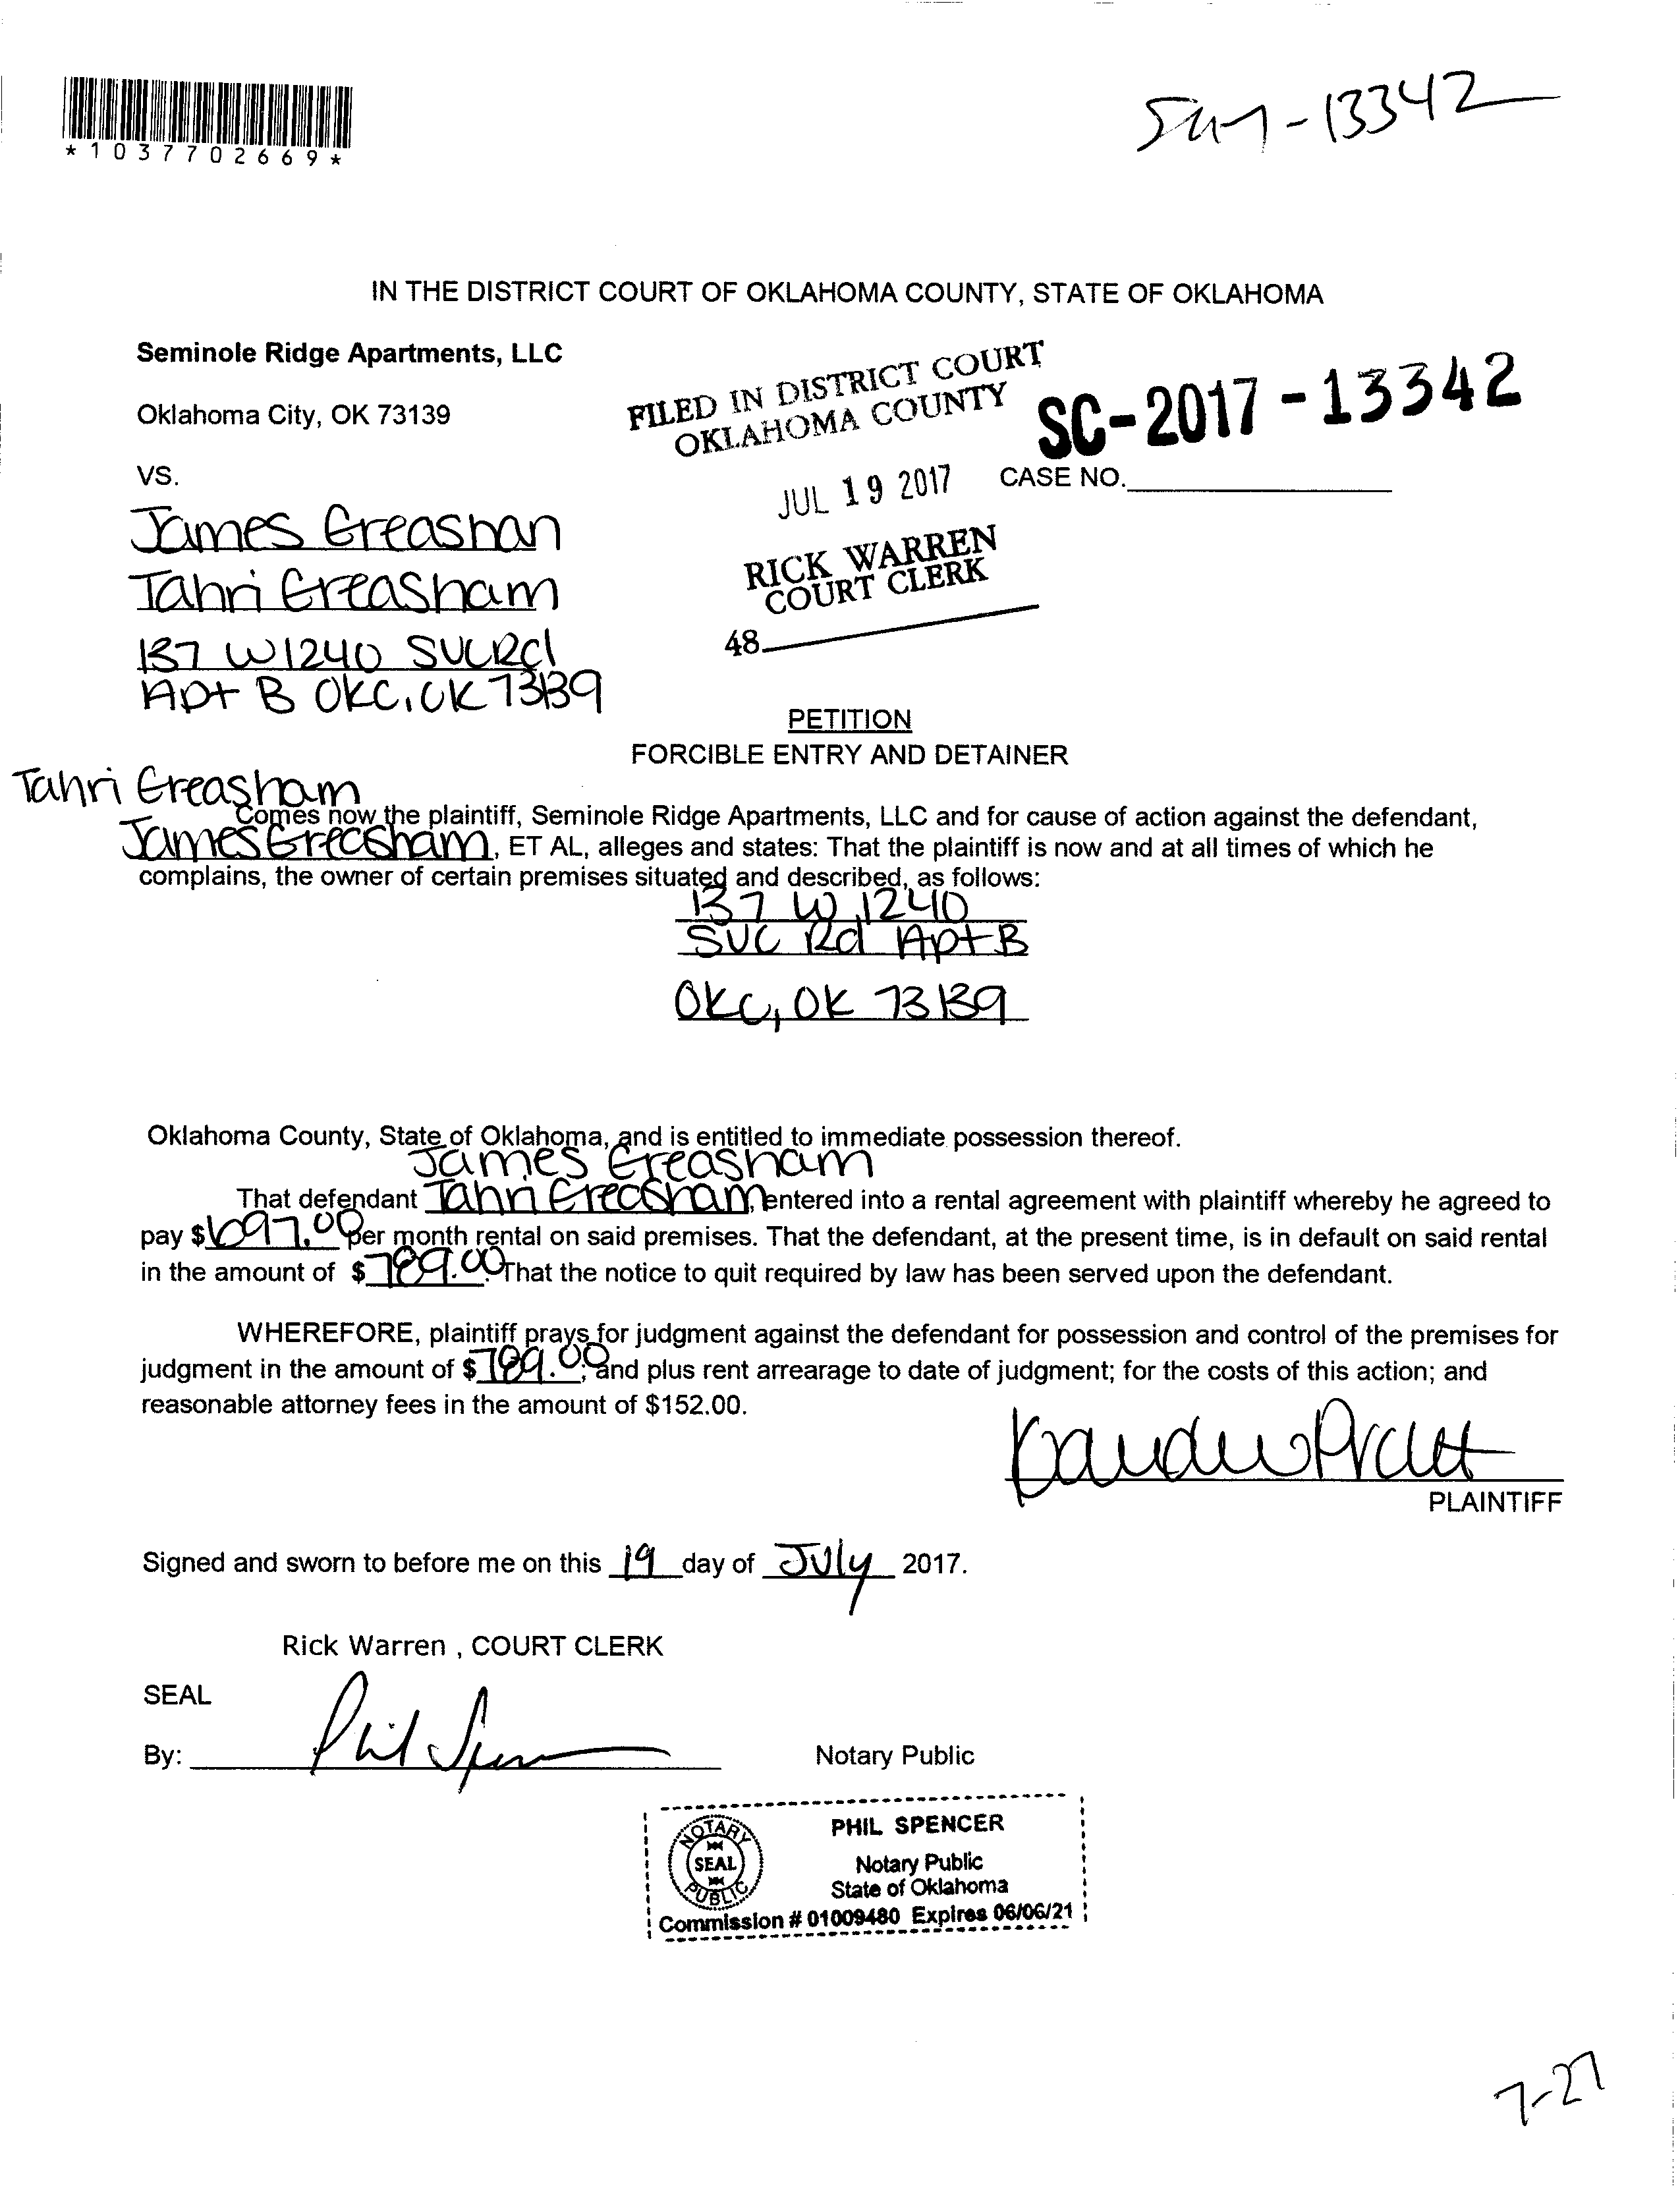 *1037702669*
13342
IN THE DISTRICT COURT OF OKLAHOMA COUNTY, STATE OF OKLAHOMA
Seminole Ridge Apartments, LLC
Oklahoma City, OK 73139
FILED IN DISTRICT COURT
OKLAHOMA COUNTY
SC-2017-13342
VS.
JUL 19 2017
CASE NO.
James Greashan
RICK WARREN
COURT CLERK
Tahri Greasham
48
137 W I240 SVC Rd
Apt B OKC, OK 73139
PETITION
FORCIBLE ENTRY AND DETAINER
Tahri Greasham
Comes now the plaintiff, Seminole Ridge Apartments, LLC and for cause of action against the defendant,
James Greasham, ET AL, alleges and states: That the plaintiff is now and at all times of which he
complains, the owner of certain premises situated and described, as follows:
137 W I240
SVC Rd Apt B
OKC, OK 73139
Oklahoma County, State of Oklahoma, and is entitled to immediate possession thereof.
James Greasham
That defendant Tahri Greasham, entered into a rental agreement with plaintiff whereby he agreed to
pay $697.00 per month rental on said premises. That the defendant, at the present time, is in default on said rental
in the amount of $789.00. That the notice to quit required by law has been served upon the defendant.
WHEREFORE, plaintiff prays for judgment against the defendant for possession and control of the premises for
judgment in the amount of $789.00; and plus rent arrearage to date of judgment; for the costs of this action; and
reasonable attorney fees in the amount of $152.00.
PLAINTIFF
Signed and sworn to before me on this 19 day of July 2017.
Rick Warren , COURT CLERK
SEAL
By: Phil Spencer Notary Public
NOTARY SEAL PUBLIC
PHIL SPENCER
Notary Public
State of Oklahoma
Commission # 01009480 Expires 06/06/21
7-27